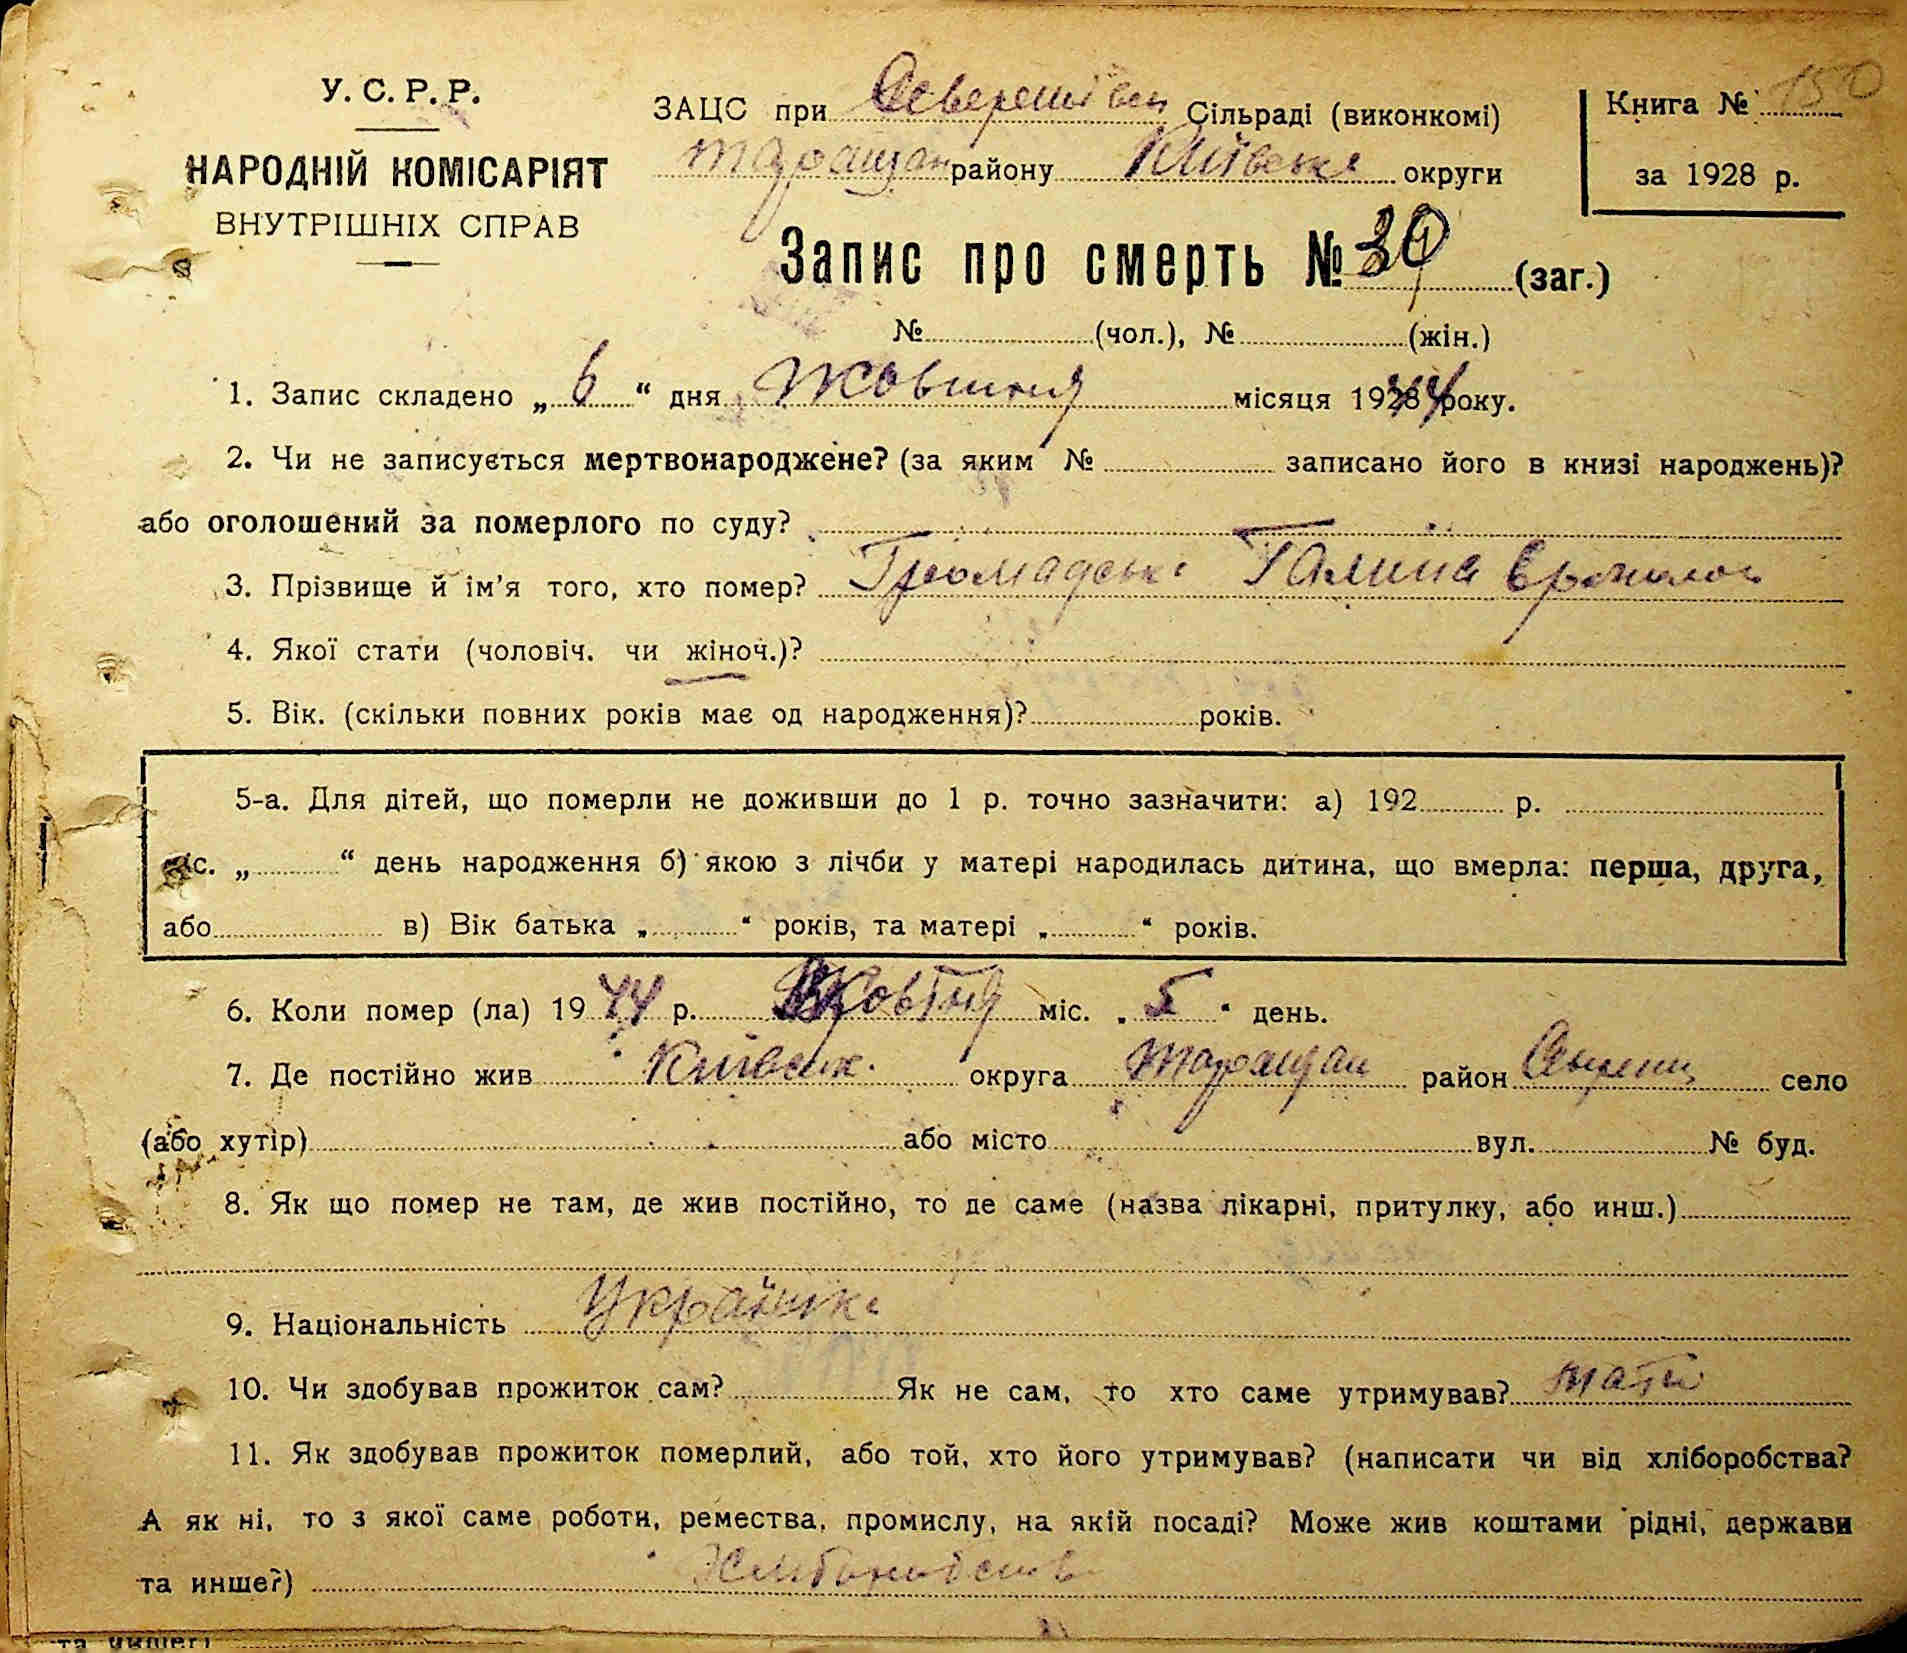 У. С. Р. Р.
НАРОДНІЙ КОМІСАРІЯТ
ВНУТРІШНІХ СПРАВ
ЗАЦС при Сільраді (виконкомі)
Таращан району Київська округи
Книга № 150
за 1928 р.
Запис про смерть № (заг.)
№ (чол.), № (жін.)
1. Запис складено „ 6 “ дня Жовтня місяця 1944 року.
2. Чи не записується мертвонароджене? (за яким № записано його в книзі народжень)?
або оголошений за померлого по суду?
3. Прізвище й ім'я того, хто помер? Громадська Галина
4. Якої стати (чоловіч. чи жіноч.)?
5. Вік. (скільки повних років має од народження)? років.
5-а. Для дітей, що померли не доживши до 1 р. точно зазначити: а) 192 р.
міс. „ “ день народження б) якою з лічби у матері народилась дитина, що вмерла: перша, друга,
або в) Вік батька „ “ років, та матері „ “ років.
6. Коли помер (ла) 1944 р. Жовтня міс. „ 5 “ день.
7. Де постійно жив Київськ. округа Таращан район село
(або хутір) або місто вул. № буд.
8. Як що помер не там, де жив постійно, то де саме (назва лікарні, притулку, або инш.)
9. Національність Українка
10. Чи здобував прожиток сам? Як не сам, то хто саме утримував? мати
11. Як здобував прожиток померлий, або той, хто його утримував? (написати чи від хліборобства?
А як ні, то з якої саме роботи, ремества, промислу, на якій посаді? Може жив коштами рідні, держави
та инше?)
та инше?)